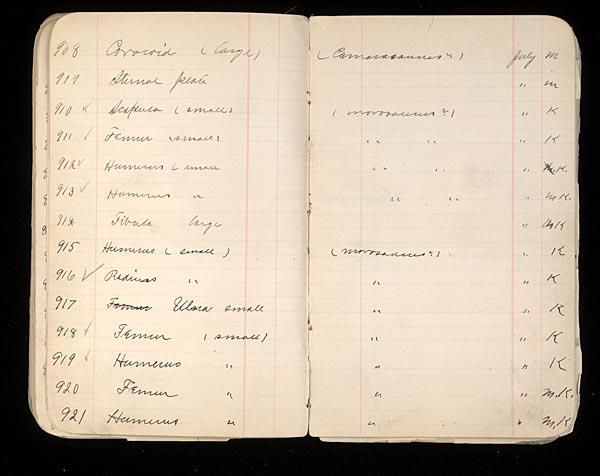 908 Coracoid (large) (Camarasaurus?) July M
909 Sternal plate " M
910 ✓ Scapula (small) (morosaurus?) " K
911 ✓ Femur (small) " " " K
912 ✓ Humerus (small " " " M.K.
913 ✓ Humerus " " " " M.K.
914 Fibula large " M.K
915 Humerus (small) (morosaurus?) " K
916 ✓ Radius " " " K
917 Femur Ulna small " " K
918 ✓ Femur (small) " " K
919 ✓ Humerus " " " K
920 Femur " " " M.K.
921 Humerus " " " M.K